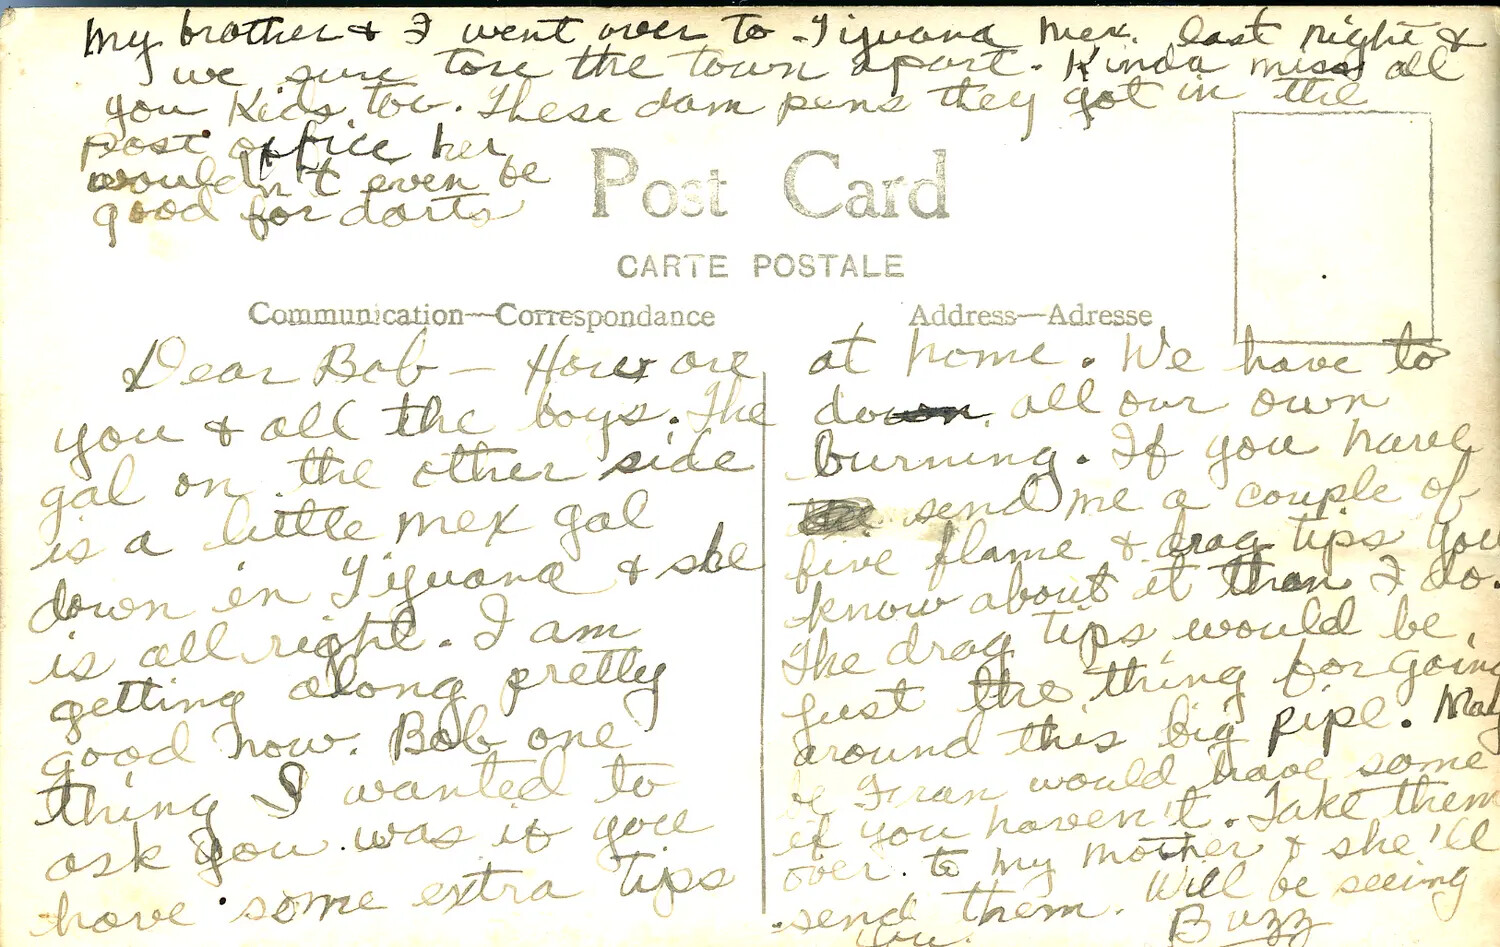 My brother & I went over to Tijuana Mex. last night &
we sure tore the town apart. Kinda miss all
you kids too. These dam pens they got in the
post office her
wouldn't even be
good for darts
Post Card
CARTE POSTALE
Communication—Correspondance
Address—Adresse
Dear Bob – How are
you & all the boys. The
gal on the other side
is a little mex gal
down in Tijuana & she
is all right. I am
getting along pretty
good now. Bob one
thing I wanted to
ask you was if you
have some extra tips
at home. We have to
do all our own
burning. If you have
send me a couple of
five flame & drag tips you
know about it than I do.
The drag tips would be
just the thing for going
around this big pipe. May
be Fran would have some
if you haven't. Take them
over to my mother & she'll
send them. Will be seeing
you. Buzz